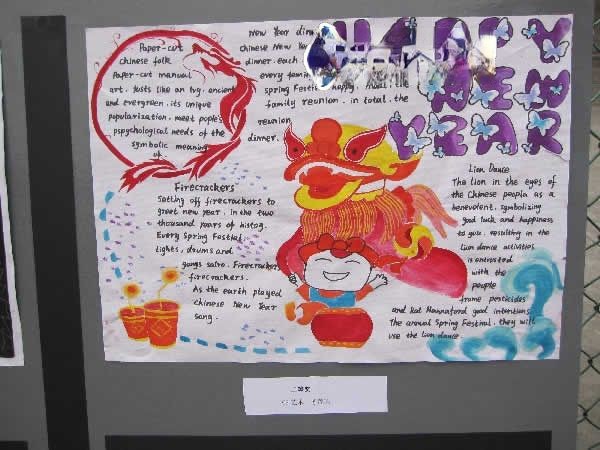 Paper-cut
Chinese folk
Paper-cut manual
art. Justs like an Ivy. ancient
and evergreen. its unique
popularization. meet pople's
pspychological needs of the
symbolic meaning
of
New Year
Chinese New Year
dinner. each
every
Spring Festival happy.
family reunion. in total. the
reunion
dinner.
HAPPY
NEW
YEAR
Firecrackers
Setting off firecrackers to
greet new year. in the two
thousand years of histoy.
Every Spring Festival
lights, drums and
gongs salvo. Firecrackers
firecrackers.
As the earth played
Chinese New Year
song.
Lion Dance
The lion in the eyes of
the Chinese people as a
benevolent. symbolizing
good luck and happiness
to you. resulting in the
lion dance activities
is entrusted
with the
people
frame pesticides
and Kat Hannaford good intentions
The annual Spring Festival. they will
use the lion dance.
二等奖